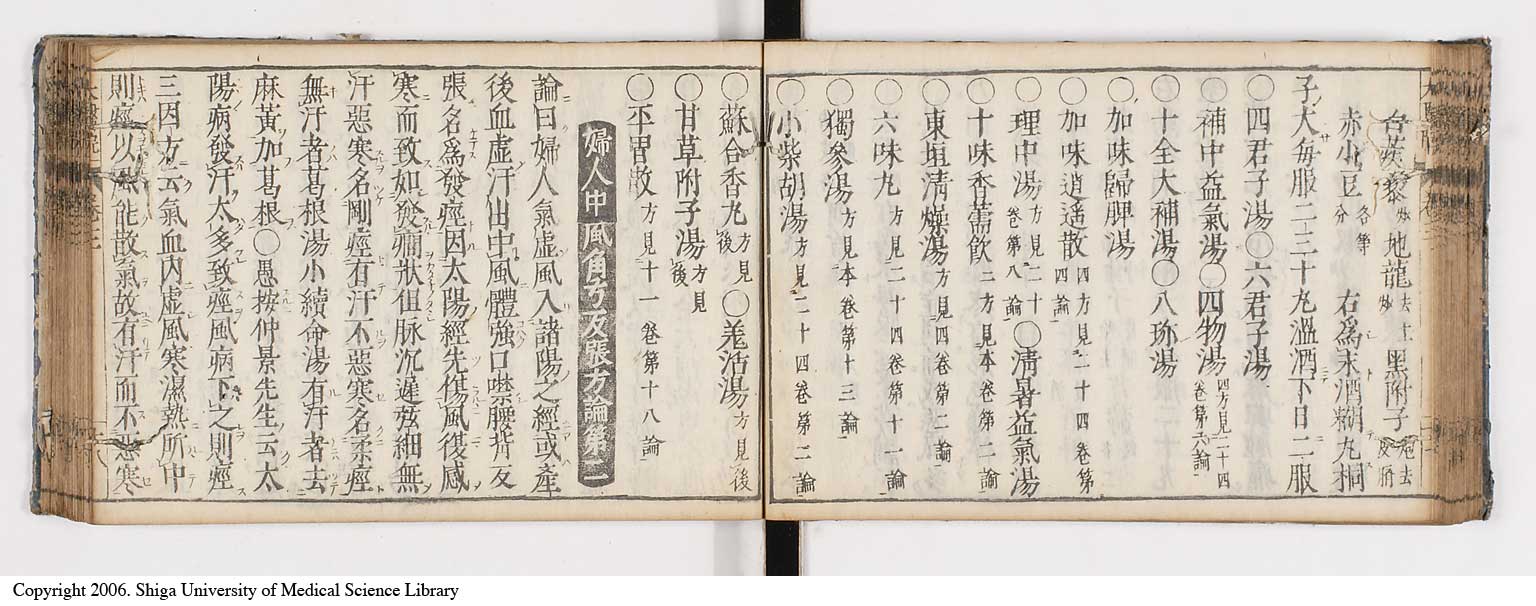 白蒺藜炒 地龍去土炒 黑附子炮去皮臍
赤小豆各等分 右爲末酒糊丸桐
子大每服二三十丸溫酒下日二服
○四君子湯○六君子湯
○補中益氣湯○四物湯四方見二十四卷第六論
○十全大補湯○八珍湯
○加味歸脾湯
○加味逍遙散四方見二十四卷第四論
○理中湯方見二十卷第八論○淸暑益氣湯
○十味香薷飲二方見本卷第二論
○東垣淸燥湯方見四卷第二論
○六味丸方見二十四卷第十一論
○獨參湯方見本卷第十三論
○小柴胡湯方見二十四卷第二論
○蘇合香丸方見後○羗活湯方見後
○甘草附子湯方見後
○平胃散方見十一卷第十八論
婦人中風角弓反張方論第二
論曰婦人氣虛風入諸陽之經或產
後血虛汗出中風體強口噤腰背反
張名爲發痙因太陽經先傷風復感
寒而致如發癎狀但脉沉遲弦細無
汗惡寒名剛痙有汗不惡寒名柔痙
無汗者葛根湯小續命湯有汗者去
麻黃加葛根○愚按仲景先生云太
陽病發汗太多致痙風病下之則痙
三因方云氣血內虛風寒濕熱所中
則痙以 能故氣故有汗而不惡寒